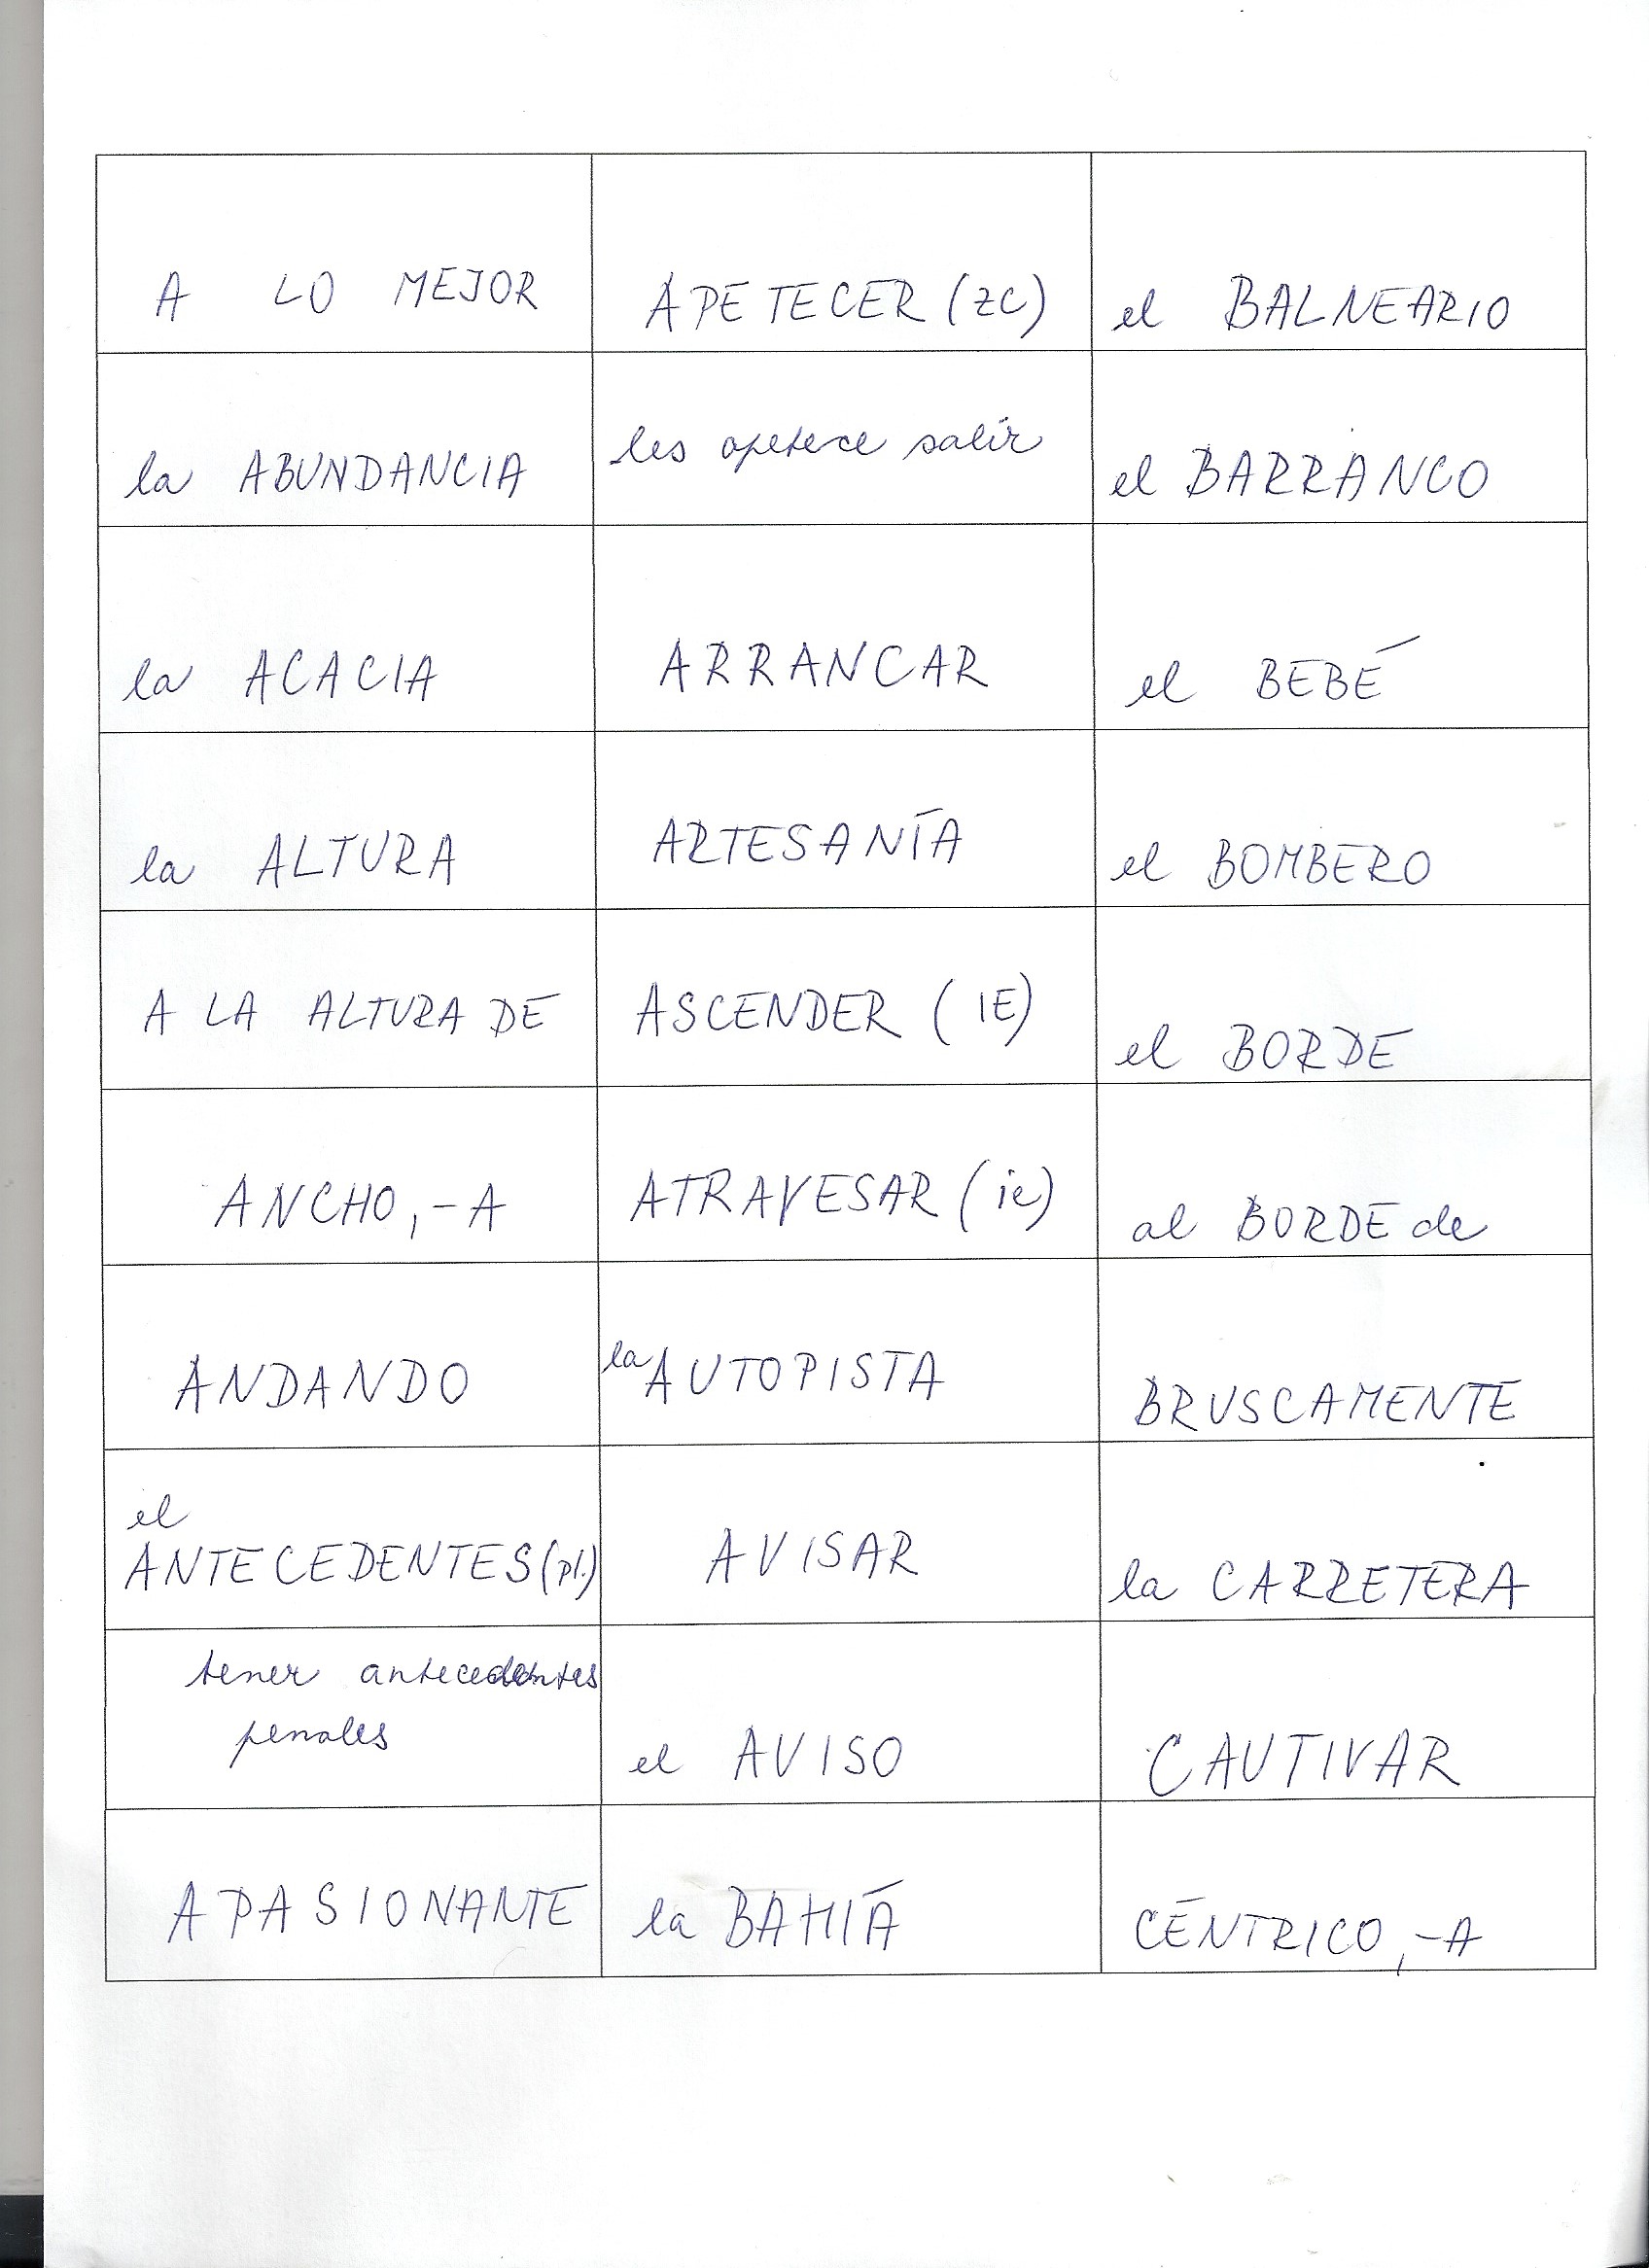 A LO MEJOR
APETECER (ZC)
el BALNEARIO
la ABUNDANCIA
les apetece salir
el BARRANCO
la ACACIA
ARRANCAR
el BEBÉ
la ALTURA
ARTESANÍA
el BOMBERO
A LA ALTURA DE
ASCENDER (IE)
el BORDE
ANCHO, -A
ATRAVESAR (ie)
al BORDE de
ANDANDO
la AUTOPISTA
BRUSCAMENTE
el
ANTECEDENTES (pl.)
AVISAR
la CARRETERA
tener antecedentes
penales
el AVISO
CAUTIVAR
APASIONANTE
la BAHÍA
CÉNTRICO, -A